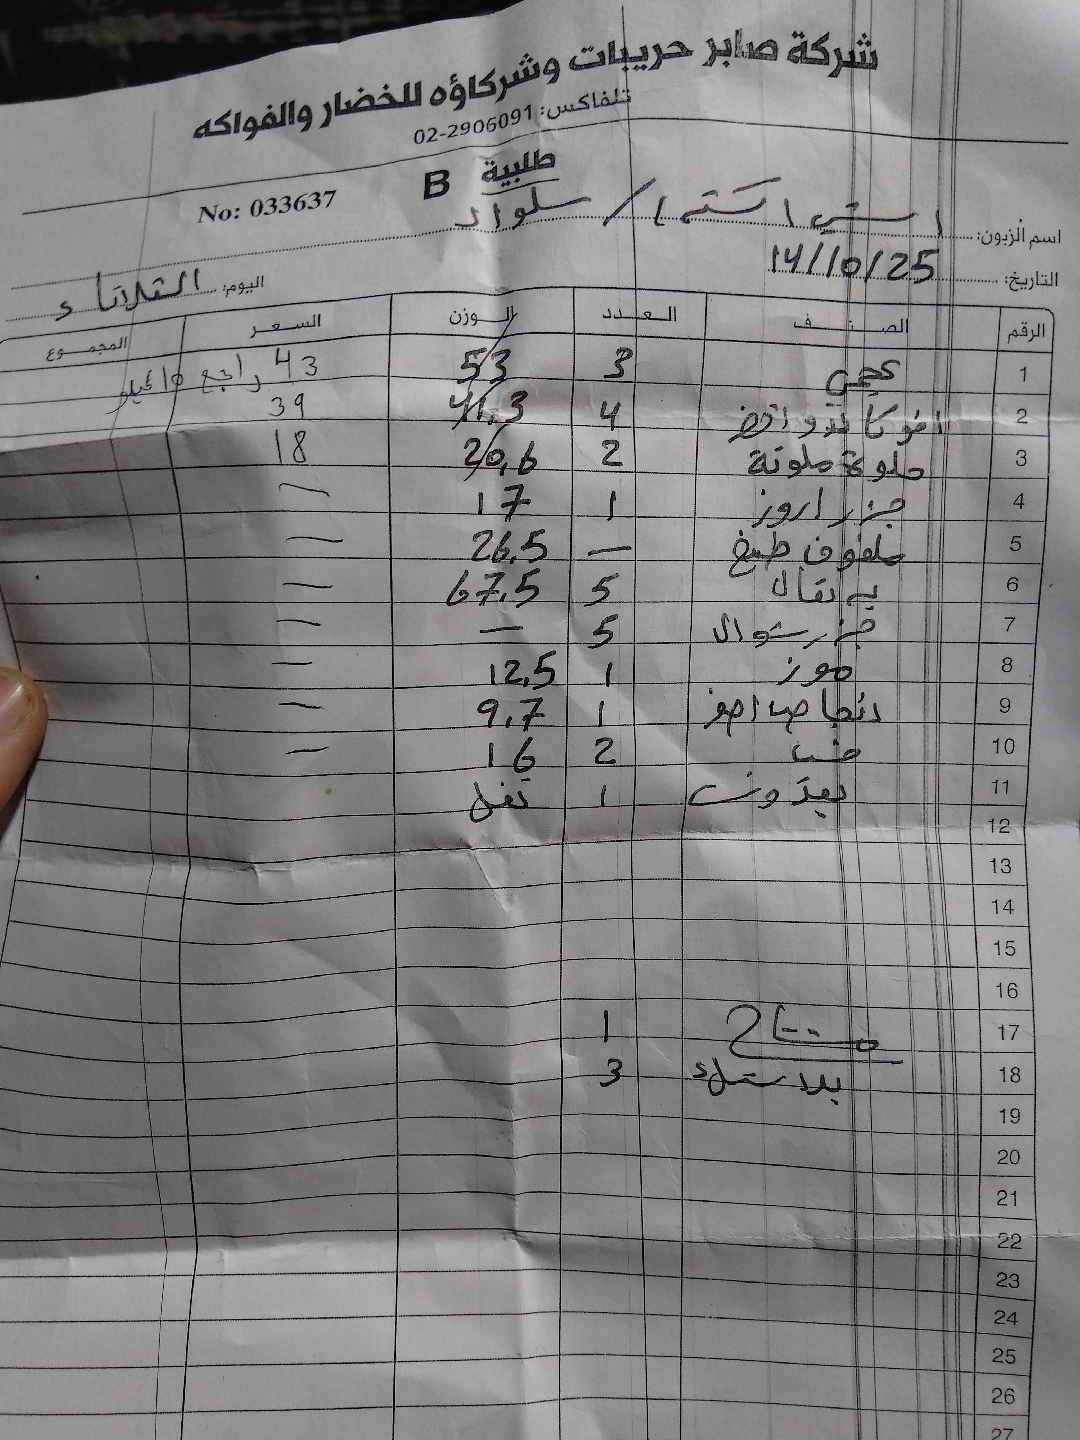 شركة صابر حريبات وشركاؤه للخضار والفواكه
تلفاكس: 02-2906091
طلبية B
No: 033637
اسم الزبون: / سلواد
التاريخ: 14/10/25
اليوم: الثلاثاء
الرقم الصنف العدد الوزن السعر المجموع
1 عجمي 3 53 43 راجع 10 كيلو
2 افوكادو 4 41,3 39
3 حلوة ملونة 2 20,6 18
4 جزر اروز 1 17 —
5 ملفوف طبخ — 26,5 —
6 برتقال 5 67,5 —
7 جزر شوال 5 — —
8 موز 1 12,5 —
9 انجاص اصفر 1 9,7 —
10 2 16 —
11 بقدونس 1
12
13
14
15
16
17 مشتاح 1
18 بلاستيك 3
19
20
21
22
23
24
25
26
27